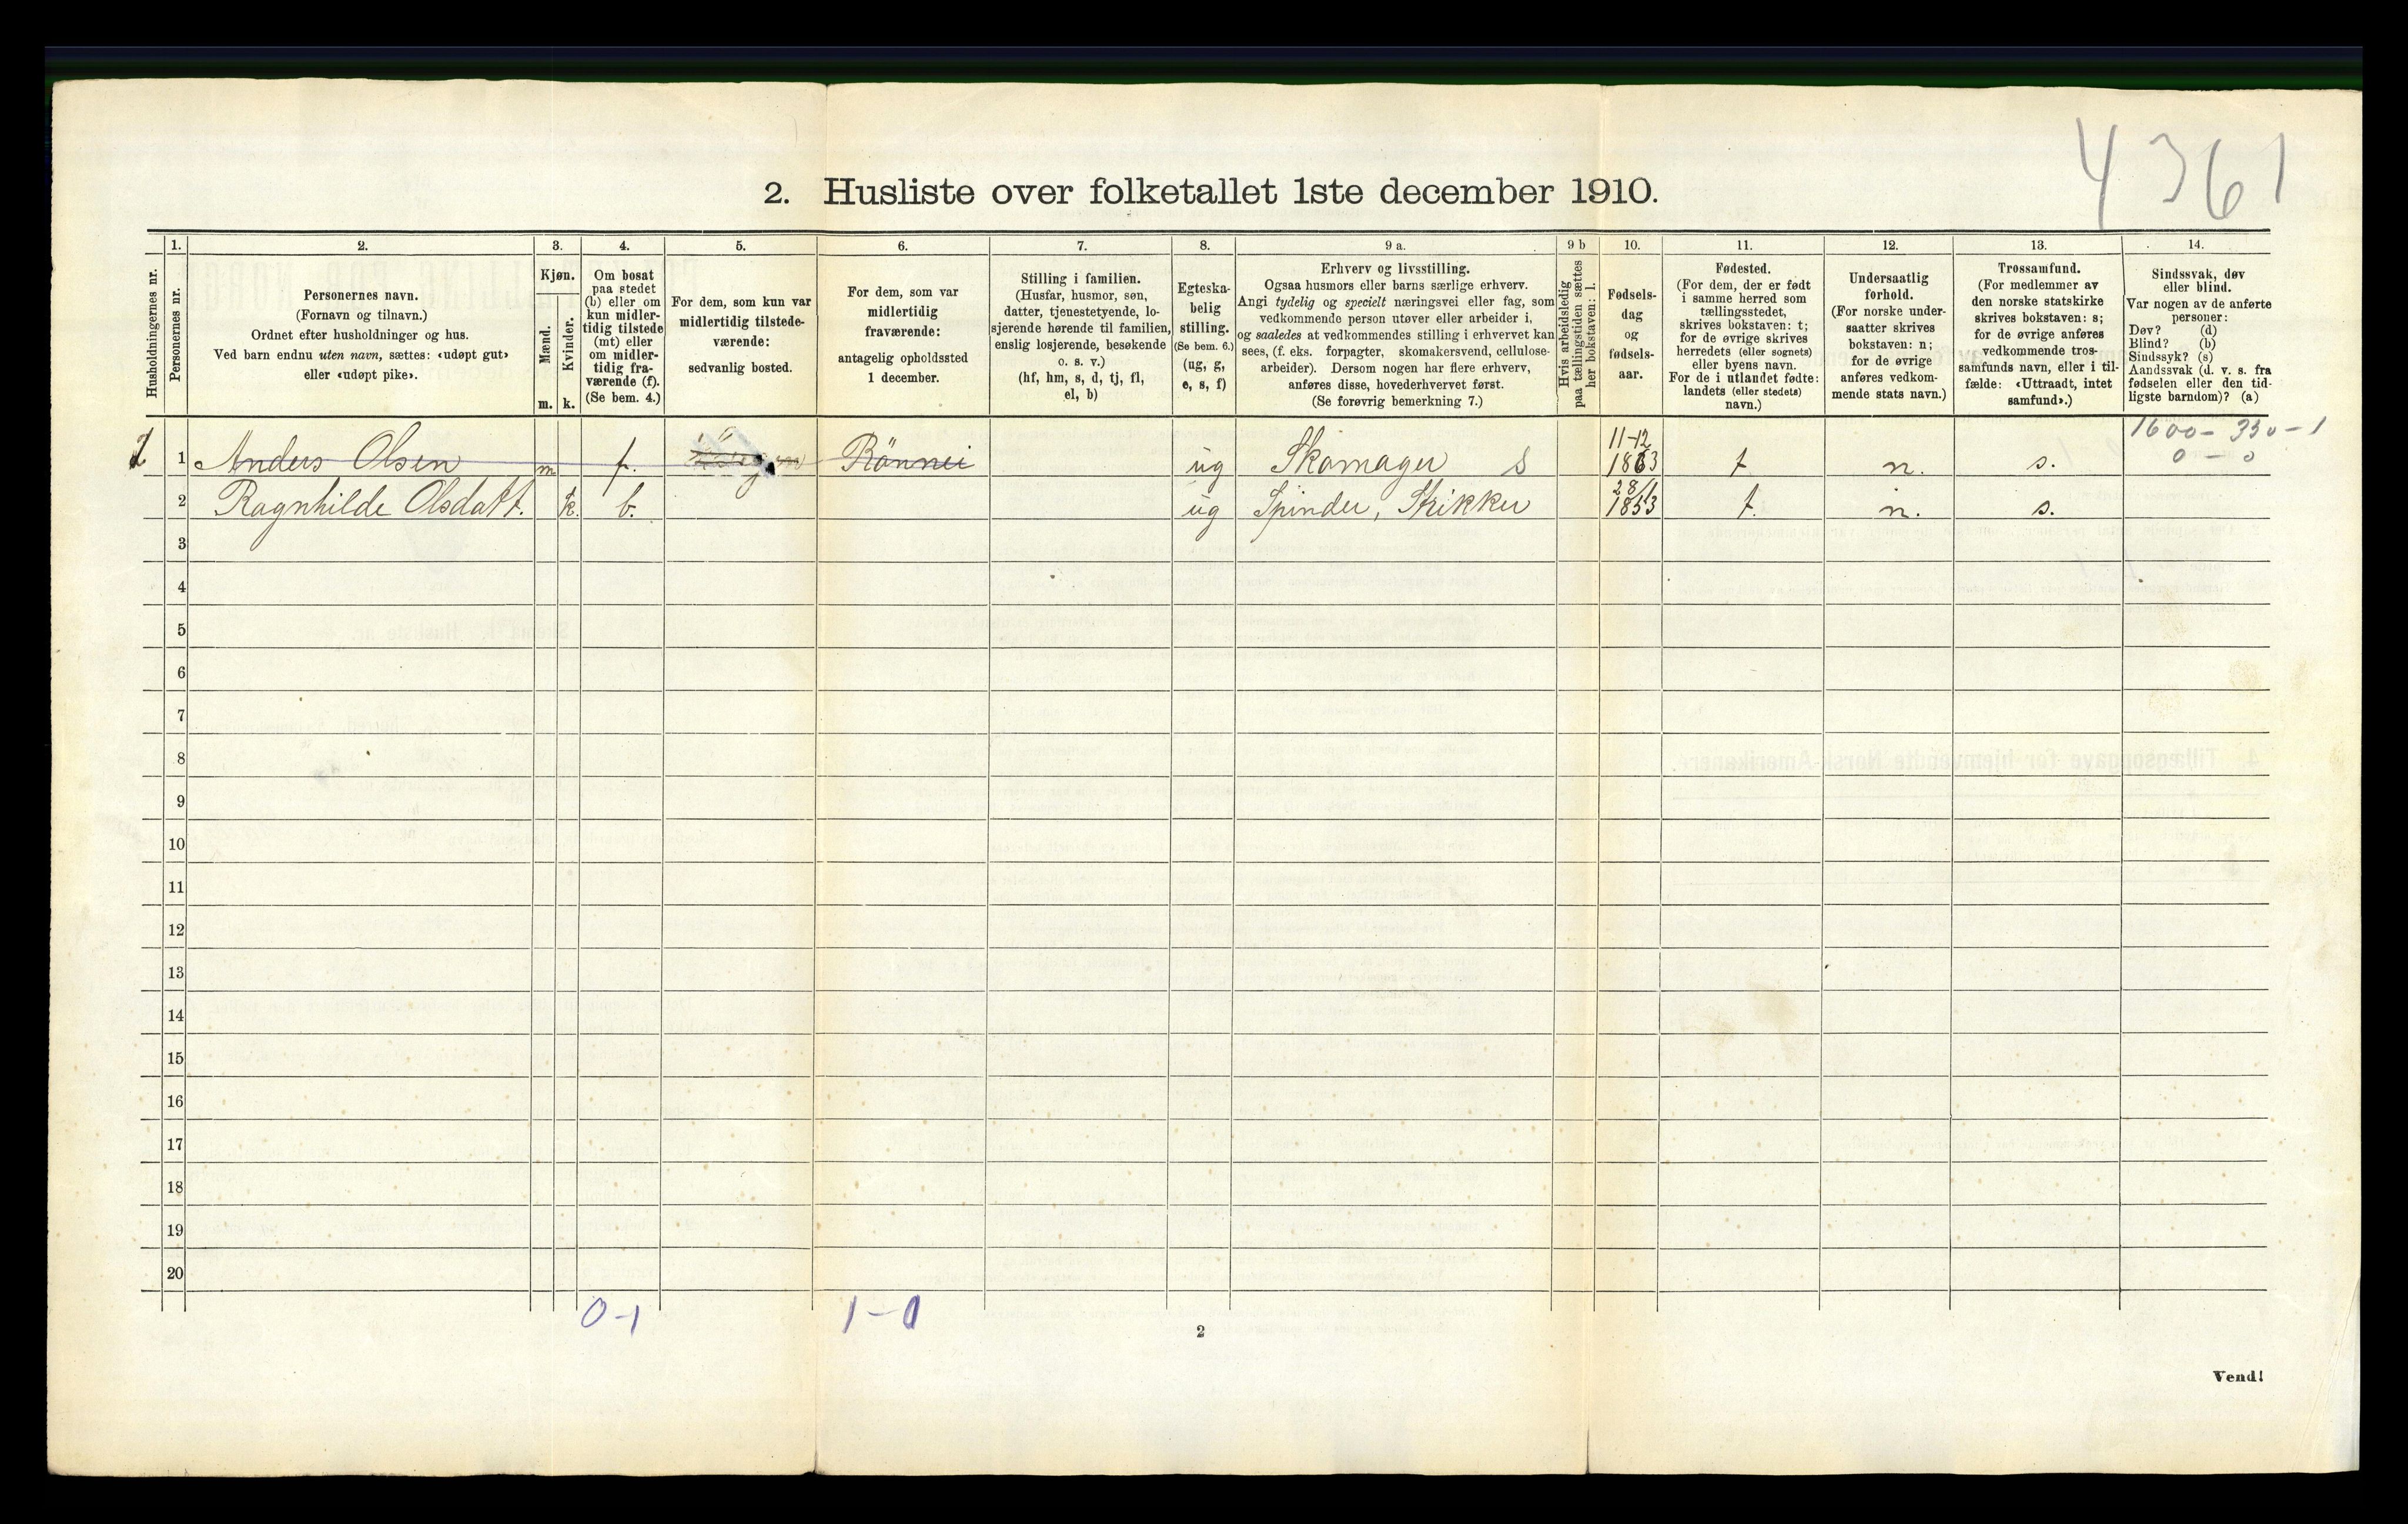 4361
2. Husliste over folketallet 1ste december 1910.
1. 2. 3. 4. 5. 6. 7. 8. 9 a. 9 b 10. 11. 12. 13. 14.
Husholdningernes nr.
Personernes nr.
Personernes navn.
(Fornavn og tilnavn.)
Ordnet efter husholdninger og hus.
Ved barn endnu uten navn, sættes: «udøpt gut»
eller «udøpt pike».
Kjøn.
Mænd.
Kvinder.
m. k.
Om bosat
paa stedet
(b) eller om
kun midler-
tidig tilstede
(mt) eller
om midler-
tidig fra-
værende (f).
(Se bem. 4.)
For dem, som kun var
midlertidig tilstede-
værende:
sedvanlig bosted.
For dem, som var
midlertidig
fraværende:
antagelig opholdssted
1 december.
Stilling i familien.
(Husfar, husmor, søn,
datter, tjenestetyende, lo-
sjerende hørende til familien,
enslig losjerende, besøkende
o. s. v.)
(hf, hm, s, d, tj, fl,
el, b)
Egteska-
belig
stilling.
(Se bem. 6.)
(ug, g,
e, s, f)
Erhverv og livsstilling.
Ogsaa husmors eller barns særlige erhverv.
Angi tydelig og specielt næringsvei eller fag, som
vedkommende person utøver eller arbeider i,
og saaledes at vedkommendes stilling i erhvervet kan
sees, (f. eks. forpagter, skomakersvend, cellulose-
arbeider). Dersom nogen har flere erhverv,
anføres disse, hovederhvervet først.
(Se forøvrig bemerkning 7.)
Hvis arbeidsledig
paa tællingstiden sættes
her bokstaven: l.
Fødsels-
dag
og
fødsels-
aar.
Fødested.
(For dem, der er født
i samme herred som
tællingsstedet,
skrives bokstaven: t;
for de øvrige skrives
herredets (eller sognets)
eller byens navn.
For de i utlandet fødte:
landets (eller stedets)
navn.)
Undersaatlig
forhold.
(For norske under-
saatter skrives
bokstaven: n;
for de øvrige
anføres vedkom-
mende stats navn.)
Trossamfund.
(For medlemmer av
den norske statskirke
skrives bokstaven: s;
for de øvrige anføres
vedkommende tros-
samfunds navn, eller i til-
fælde: «Uttraadt, intet
samfund».)
Sindssvak, døv
eller blind.
Var nogen av de anførte
personer:
Døv? (d)
Blind? (b)
Sindssyk? (s)
Aandssvak (d. v. s. fra
fødselen eller den tid-
ligste barndom)? (a)
1600 - 330 - 1
0 - 0
1 1 Anders Olsen m f. Rönnei ug Skomager s 11-12 1863 t n. s.
2 Ragnhilde Olsdatt. k. b. ug Spinder, Strikker 28/1 1853 t. n. s.
3
4
5
6
7
8
9
10
11
12
13
14
15
16
17
18
19
20
0-1 1-0
2
Vend!